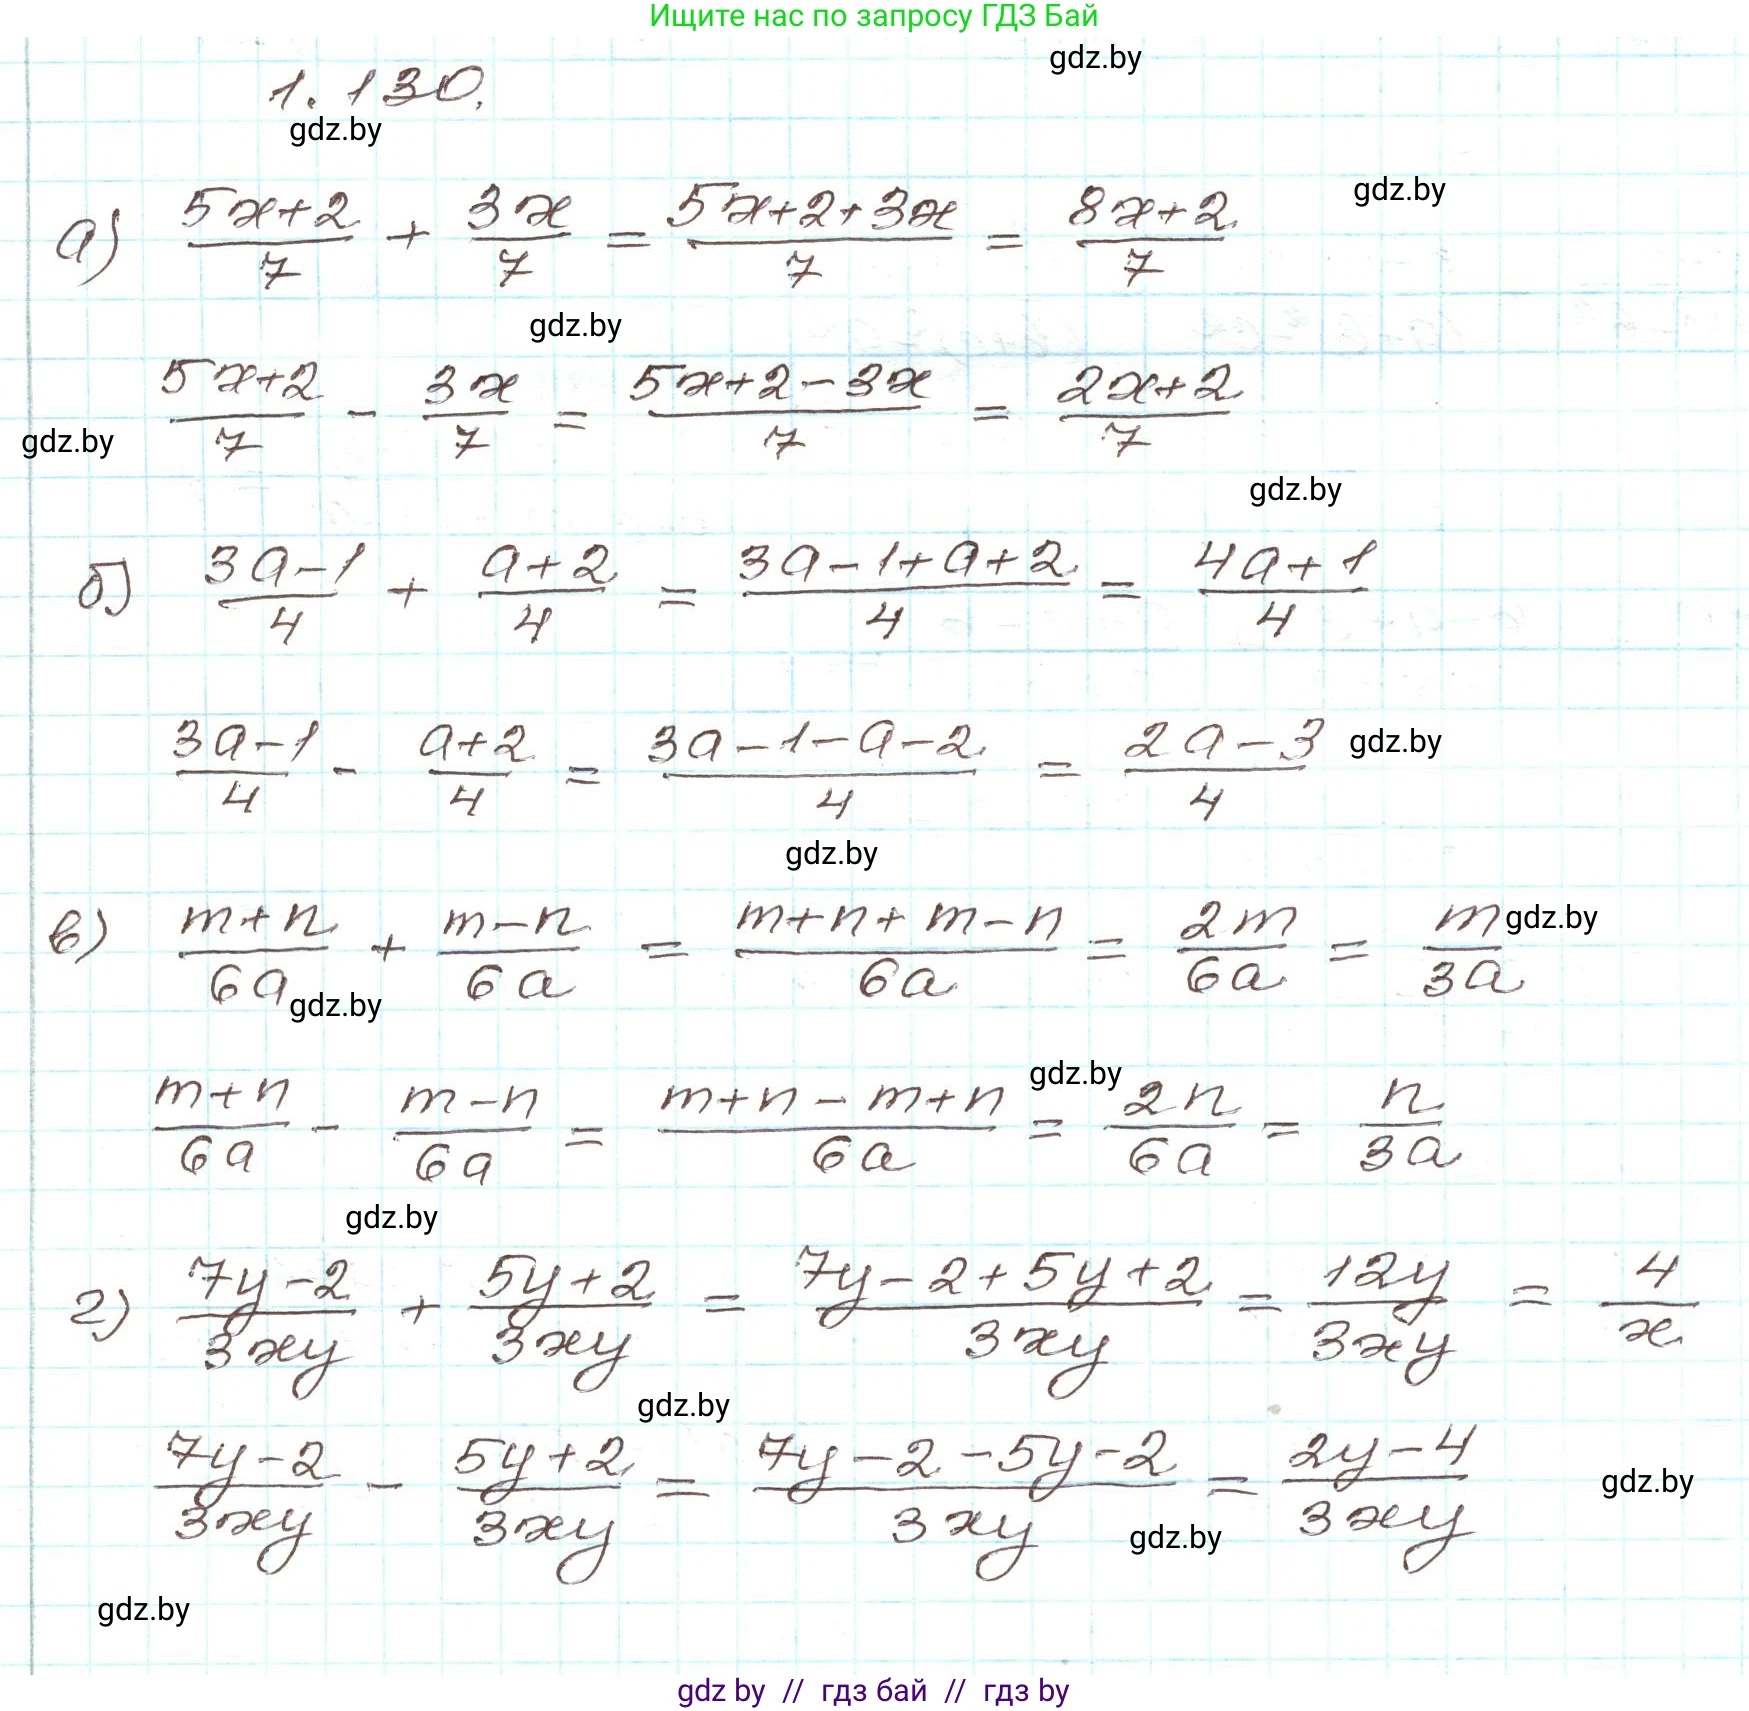 Ищите нас по запросу ГДЗ Бай
gdz.by
1.130.
gdz.by
gdz.by
а) (5x+2)/7 + 3x/7 = (5x+2+3x)/7 = (8x+2)/7
gdz.by
(5x+2)/7 - 3x/7 = (5x+2-3x)/7 = (2x+2)/7
gdz.by
gdz.by
б) (3a-1)/4 + (a+2)/4 = (3a-1+a+2)/4 = (4a+1)/4
(3a-1)/4 - (a+2)/4 = (3a-1-a-2)/4 = (2a-3)/4
gdz.by
gdz.by
в) (m+n)/6a + (m-n)/6a = (m+n+m-n)/6a = 2m/6a = m/3a
gdz.by
gdz.by
gdz.by
(m+n)/6a - (m-n)/6a = (m+n-m+n)/6a = 2n/6a = n/3a
gdz.by
г) (7y-2)/3xy + (5y+2)/3xy = (7y-2+5y+2)/3xy = 12y/3xy = 4/x
gdz.by
(7y-2)/3xy - (5y+2)/3xy = (7y-2-5y-2)/3xy = (2y-4)/3xy
gdz.by
gdz.by
gdz.by
gdz by // гдз бай // гдз by